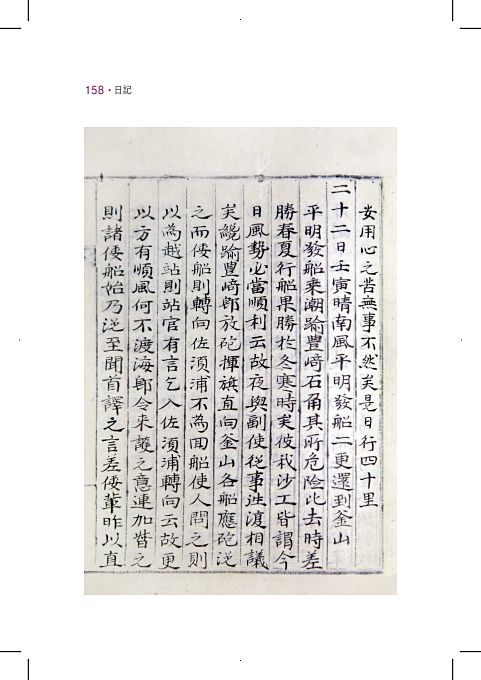 158・日記
安用心之苦無事不然矣是日行四十里
二十二日壬寅晴南風平明發船二更還到釜山
平明發船乘潮踰豊﨑石角其所危險比去時差
勝春夏行船果勝於冬寒時矣彼我沙工皆謂今
日風勢必當順利云故夜與副使從事徃復相議
矣纔踰豊﨑卽放砲揮旗直向釜山各船應砲従
之而倭船則轉向佐湏浦不為回船使人問之則
以為越站則站官有言乞入佐湏浦轉向云故更
以方有順風何不渡海卽令來護之意連加督之
則諸倭船始乃従至聞首譯之言差倭輩昨以直